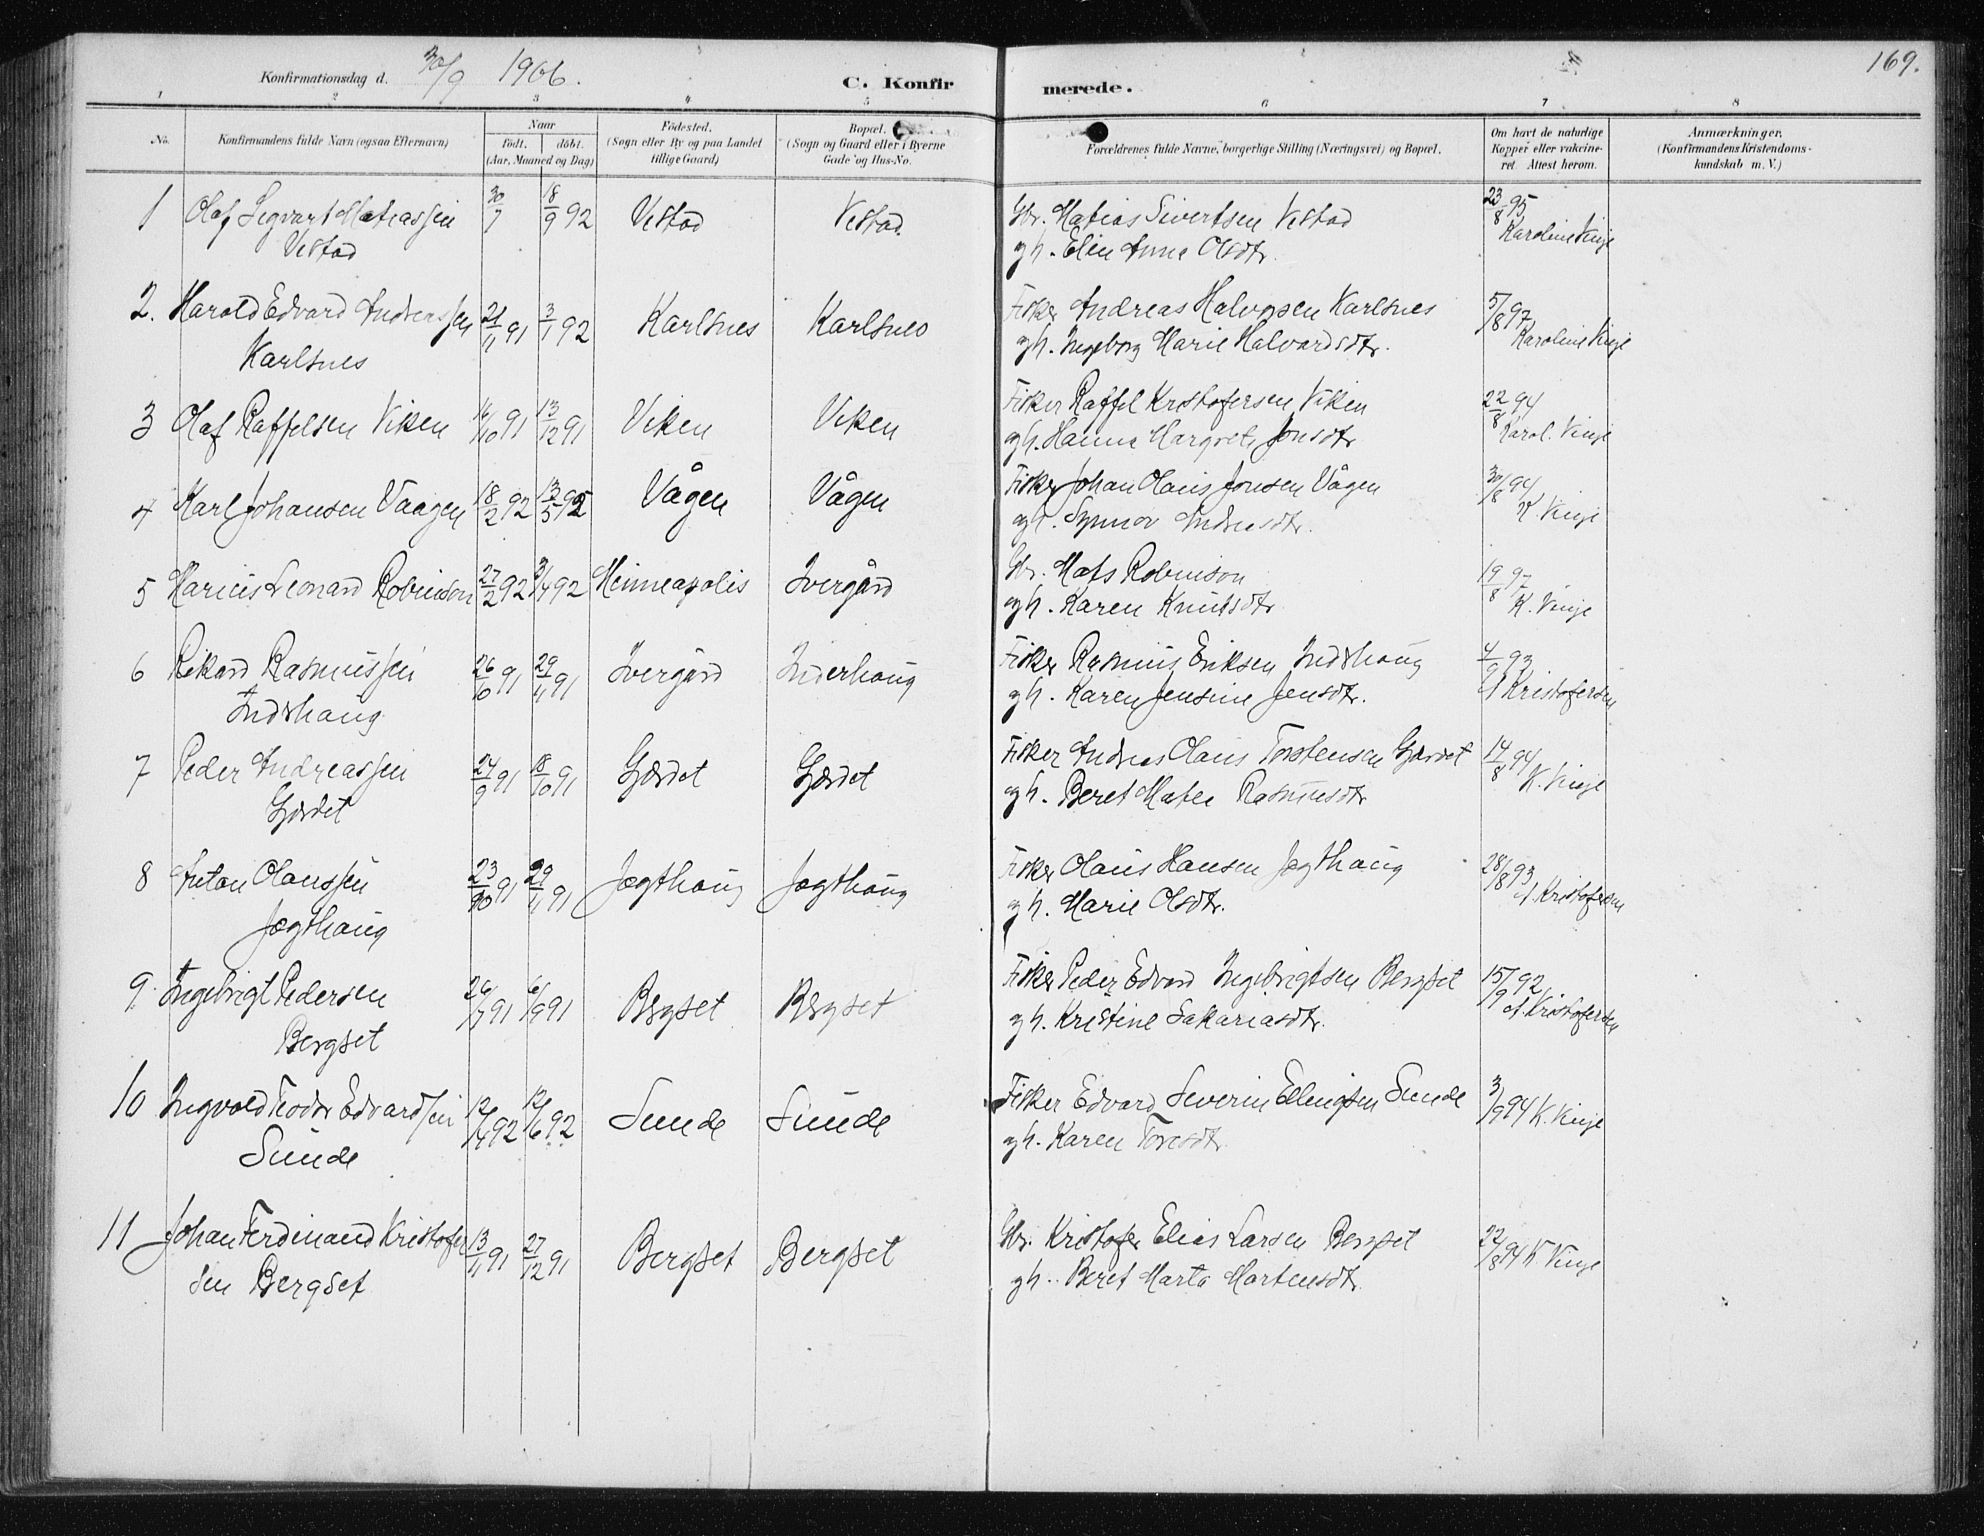 169.
Konfirmationsdag d. 30/9 1906.
C. Konfirmerede.
1 2 3 4 5 6 7 8
No. Konfirmandens fulde Navn (ogsaa Efternavn) Naar født. døbt. (Aar, Maaned og Dag) Fødested. (Sogn eller By og paa Landet tillige Gaard) Bopæl. (Sogn og Gaard eller i Byerne Gade og Hus-No. Forældrenes fulde Navne, borgerlige Stilling (Næringsvei) og Bopæl. Om havt de naturlige Kopper eller vaccineret Attest herom. Anmærkninger. (Konfirmandens Kristendomskundskab m. V.)
1 Olaf Segvart Matiassen 30/7 18/9 92 Vestad Vestad Gbr. Matias Sivertsen Vestad 23/8 95
Vestad gh. Elen Anna Olsdtr. Karoline Vinje
2. Harold Edvard Andreassen 21/11 91 3/1 92 Karlsnes Karlsnes Fisker Andreas Halvorsen Karlsnes 5/8 97
Karlsnes gh. Ingeborg Marie Halvardsdtr. Karoline Vinje
3 Olaf Raffelsen Viken 16/10 91 13/12 91 Viken Viken Fisker Raffel Kristofersen Viken 22/8 94
gh. Hanna Margrete Jonsdtr Karol. Vinje
4 Karl Johansen Vaagen 18/2 92 13/5 92 Vågen Vågen Fisker Johan Olaus Jonsen Vågen 30/8 94
gh. Synnøv Andreasdtr. K. Vinje
5 Marius Leonard Robinson 27/2 92 3/4 92 Minneapolis Ivergård Gbr. Mats Robinson 19/8 97
gh. Karen Knutsdtr. K. Vinje
6 Rikard Rasmussen 26/10 91 29/11 91 Ivergård Inderhaug Fisker Rasmus Eriksen Indrhaug 4/9 93
Indrhaug gh. Karen Jensine Jensdtr. A Kristofersen
7 Peder Andreassen 24/9 91 18/10 91 Gjærdet Gjærdet Fisker Andreas Olaus Torstensen Gjærdet 14/8 94
Gjærdet gh. Beret Matea Rasmusdtr K. Vinje
8 Anton Olaussen 23/10 91 29/11 91 Jægthaug Jægthaug Fisker Olaus Hansen Jægthaug 28/8 93
Jægthaug gh. Marie Olsdtr. A. Kristofersen
9. Ingebrigt Pedersen 26/7 91 6/9 91 Bergset Bergset Fisker Peder Edvard Ingebrigtsen Bergset 15/9 92
Bergset gh. Kristine Sakariasdtr. A. Kristofersen
10 Ingvald Teodor Edvardsen 12/4 92 12/6 92 Sunde Sunde Fisker Edvard Severin Ellingsen Sunde 3/9 94 K. Vinje
Sunde gh. Karen Toresdtr
11 Johan Ferdinand Kristofer 13/11 91 27/12 91 Bergset Bergset Gbr. Kristofer Elias Larsen Bergset 22/8 94 K Vinje
sen Bergset gh. Beret Marta Martensdtr.